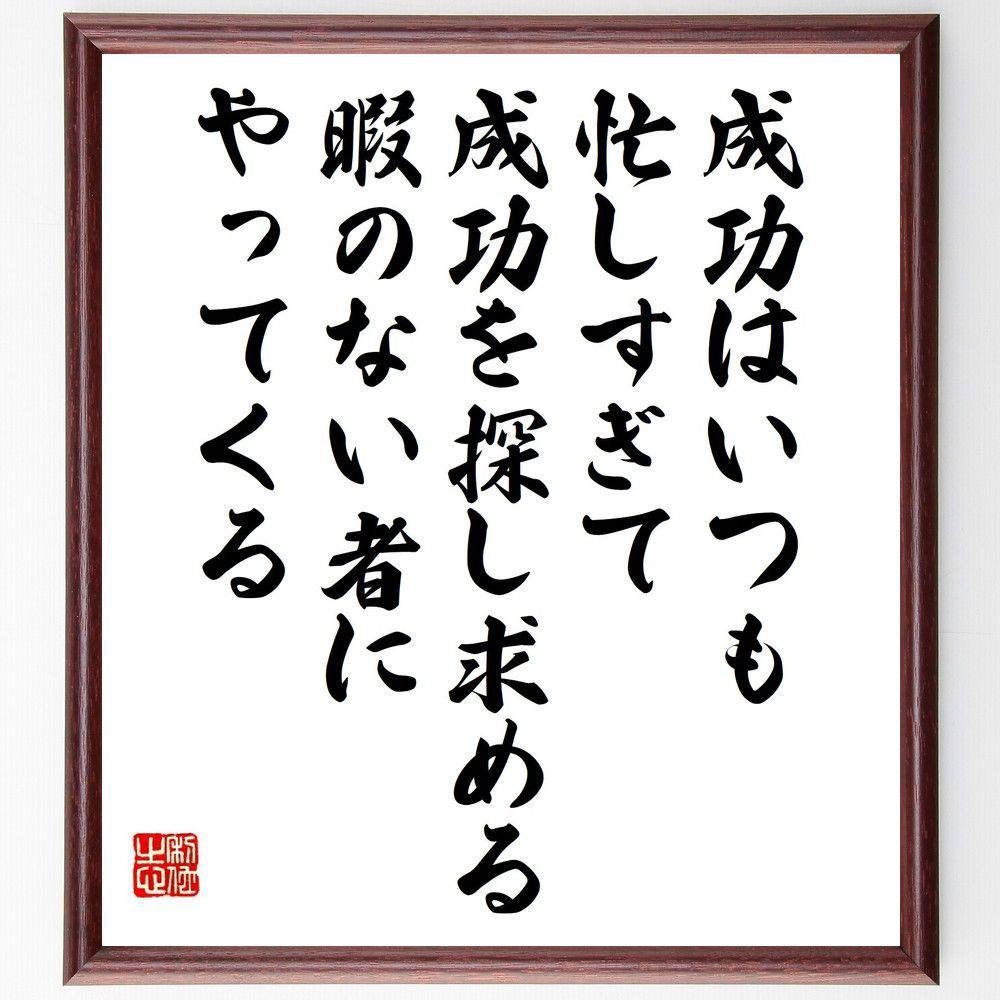 成功はいつも
忙しすぎて
成功を探し求める
暇のない者に
やってくる